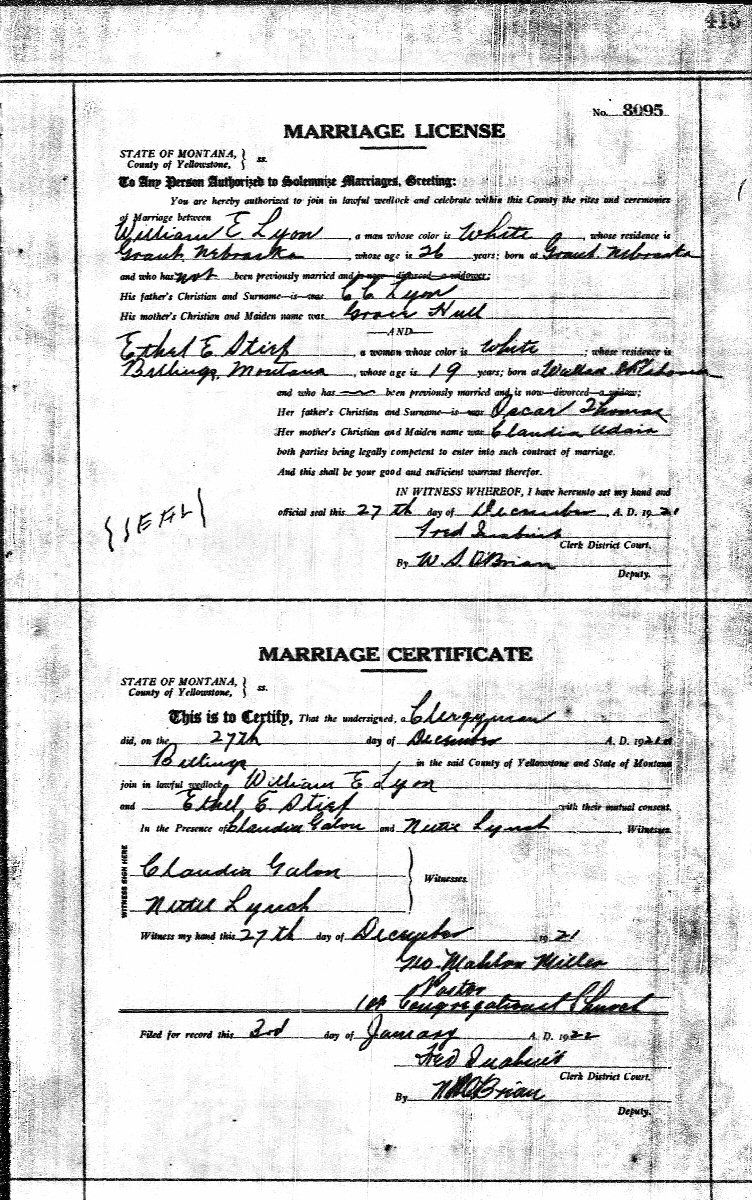 415
No. 8095
MARRIAGE LICENSE
STATE OF MONTANA, } ss.
County of Yellowstone, }
To Any Person Authorized to Solemnize Marriages, Greeting:
You are hereby authorized to join in lawful wedlock and celebrate within this County the rites and ceremonies
of Marriage between
William E Lyon, a man whose color is White, whose residence is
Grant, Nebraska, whose age is 26 years; born at Grant, Nebraska
and who has not been previously married and is now divorced a widower;
His father's Christian and Surname is was C C Lyon
His mother's Christian and Maiden name was Grace Hull
—AND—
Ethel E Stirf, a woman whose color is White; whose residence is
Billings, Montana, whose age is 19 years; born at Oklahoma
and who has been previously married and is now divorced a widow;
Her father's Christian and Surname is was Oscar Thomas
Her mother's Christian and Maiden name was Claudia Adair
both parties being legally competent to enter into such contract of marriage.
And this shall be your good and sufficient warrant therefor.
IN WITNESS WHEREOF, I have hereunto set my hand and
official seal this 27th day of December, A. D. 1921
{SEAL}
Fred
Clerk District Court.
By W. S. O'Brian
Deputy.
MARRIAGE CERTIFICATE
STATE OF MONTANA, } ss.
County of Yellowstone, }
This is to Certify, That the undersigned, a Clergyman
did, on the 27th day of December A. D. 1921 at
Billings in the said County of Yellowstone and State of Montana
join in lawful wedlock William E Lyon
and Ethel E. Stirf with their mutual consent.
In the Presence of Claudia Galon and Nettie Lynch, Witnesses
WITNESS SIGN HERE
Claudia Galon
} Witnesses.
Nettie Lynch
Witness my hand this 27th day of December 1921
Geo Mahlon Miller
Pastor
1st Congregational Church
Filed for record this 3rd day of January A. D. 1922
Fred
Clerk District Court.
By O'Brian
Deputy.